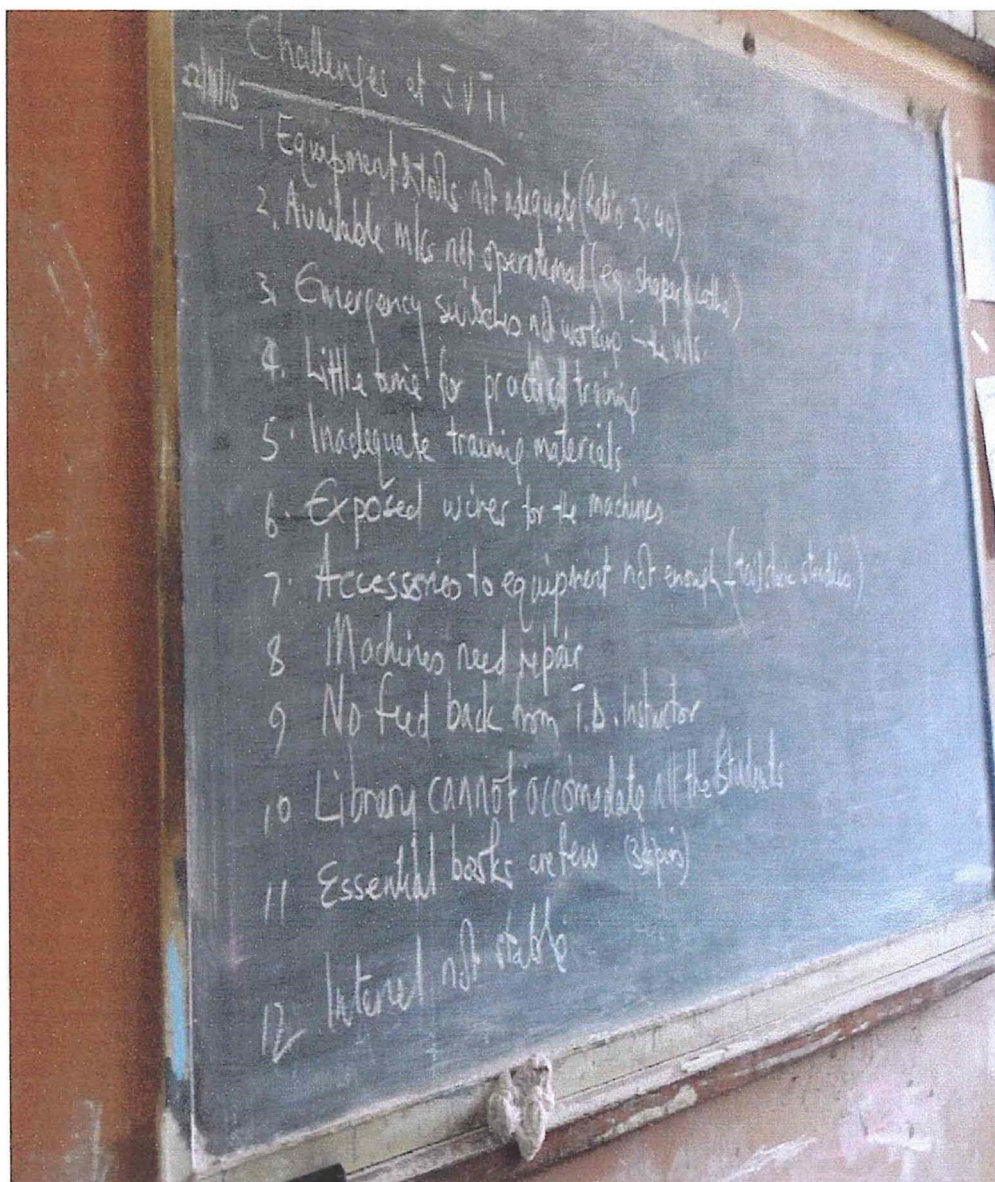 Challenges at JVTI
22/11/16
1 Equipment & tools not adequate (Ratio 2:40)
2. Available m/cs not operational (eg. shaper, Lathe)
3. Emergency switches not working - the m/c
4. Little time for practical training
5. Inadequate training materials
6. Exposed wires for the machines
7. Accessories to equipment not enough -
8 Machines need repair
9 No feed back from T.D. Instructor
10 Library cannot accomodate all the Students
11 Essential books are few
12 Internet not stable